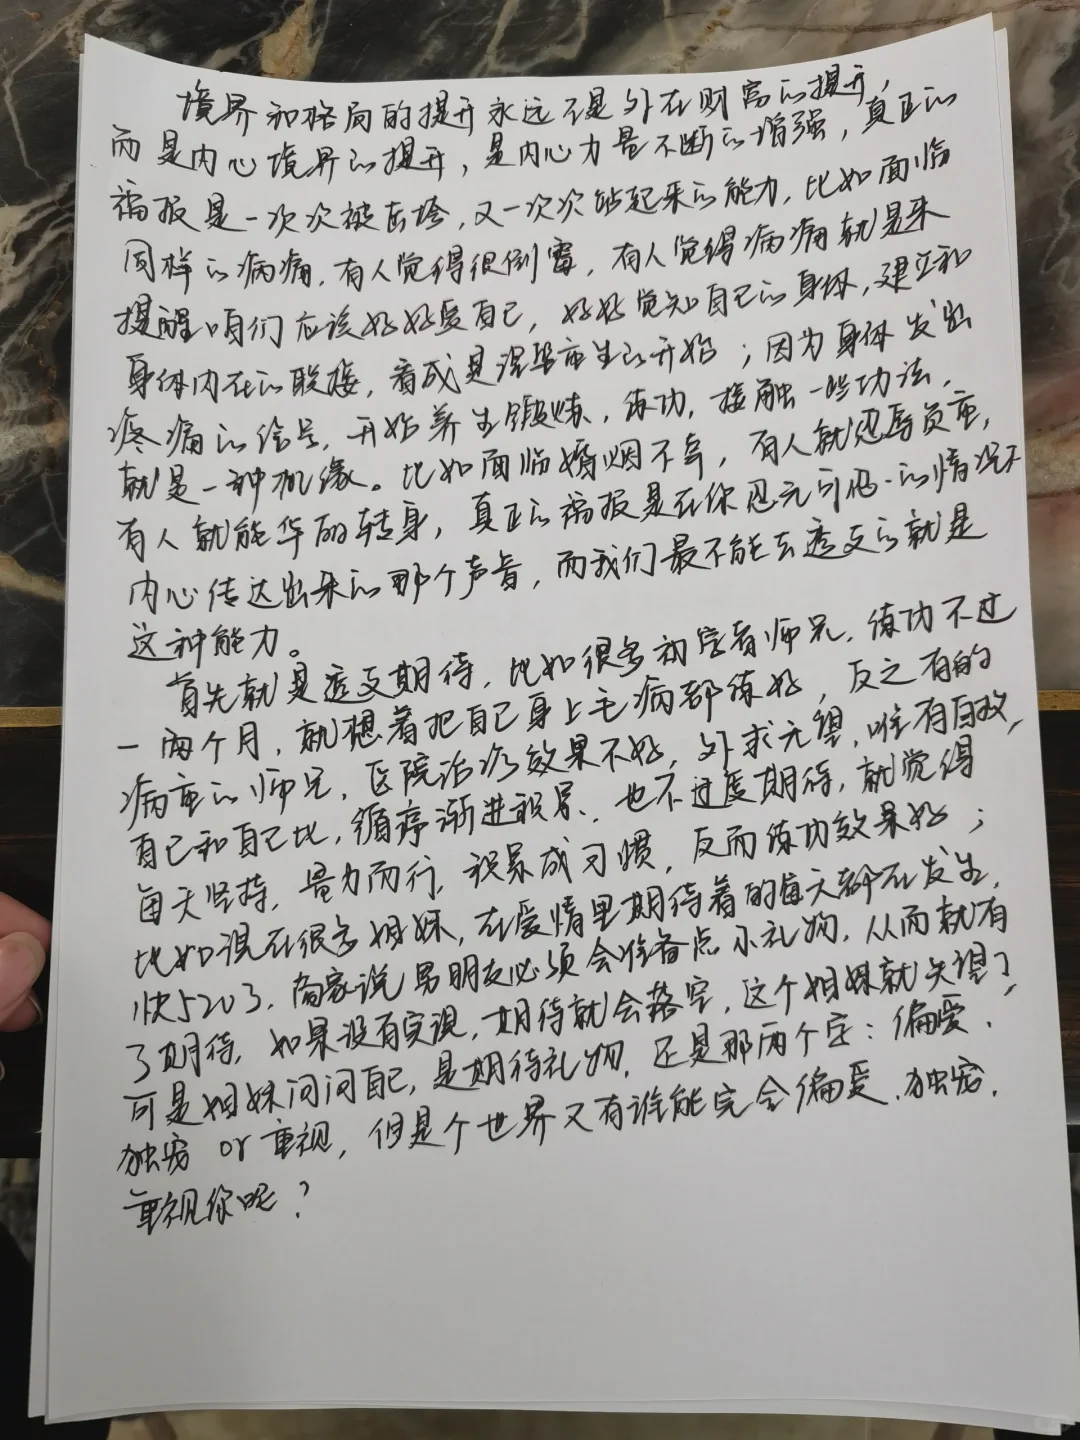 境界和格局的提升永远不是外在财富的提升，
而是内心境界的提升，是内心力量不断的增强，真正的
福报是一次次被击垮，又一次次站起来的能力，比如面临
同样的病痛，有人觉得很倒霉，有人觉得病痛就是来
提醒咱们应该好好爱自己，好好觉知自己的身体，建立和
身体内在的联接，看成是涅槃重生的开始；因为身体发出
疼痛的信号，开始养生锻炼，练功，接触一些功法，
就是一种机缘。比如面临婚姻不幸，有人就忍辱负重，
有人就能华丽转身，真正的福报是在你忍无可忍的情况下
内心传达出来的那个声音，而我们最不能去透支的就是
这种能力。
首先就是透支期待，比如很多初学者师兄，练功不过
一两个月，就想着把自己身上毛病都练好，反之有的
病重的师兄，医院治疗效果不好，外求无望，唯有自救，
自己和自己比，循序渐进积累，也不过度期待，就觉得
每天坚持，量力而行，积累成习惯，反而练功效果好；
比如说在很多姐妹，在爱情里期待着的每天都在发生，
快520了，商家说男朋友必须会准备点小礼物，从而就有
了期待，如果没有实现，期待就会落空，这个姐妹就失望了，
可是姐妹问问自己，是期待礼物，还是那两个字：偏爱、
独宠 or 重视，但是个世界又有谁能完全偏爱、独宠、
重视你呢？